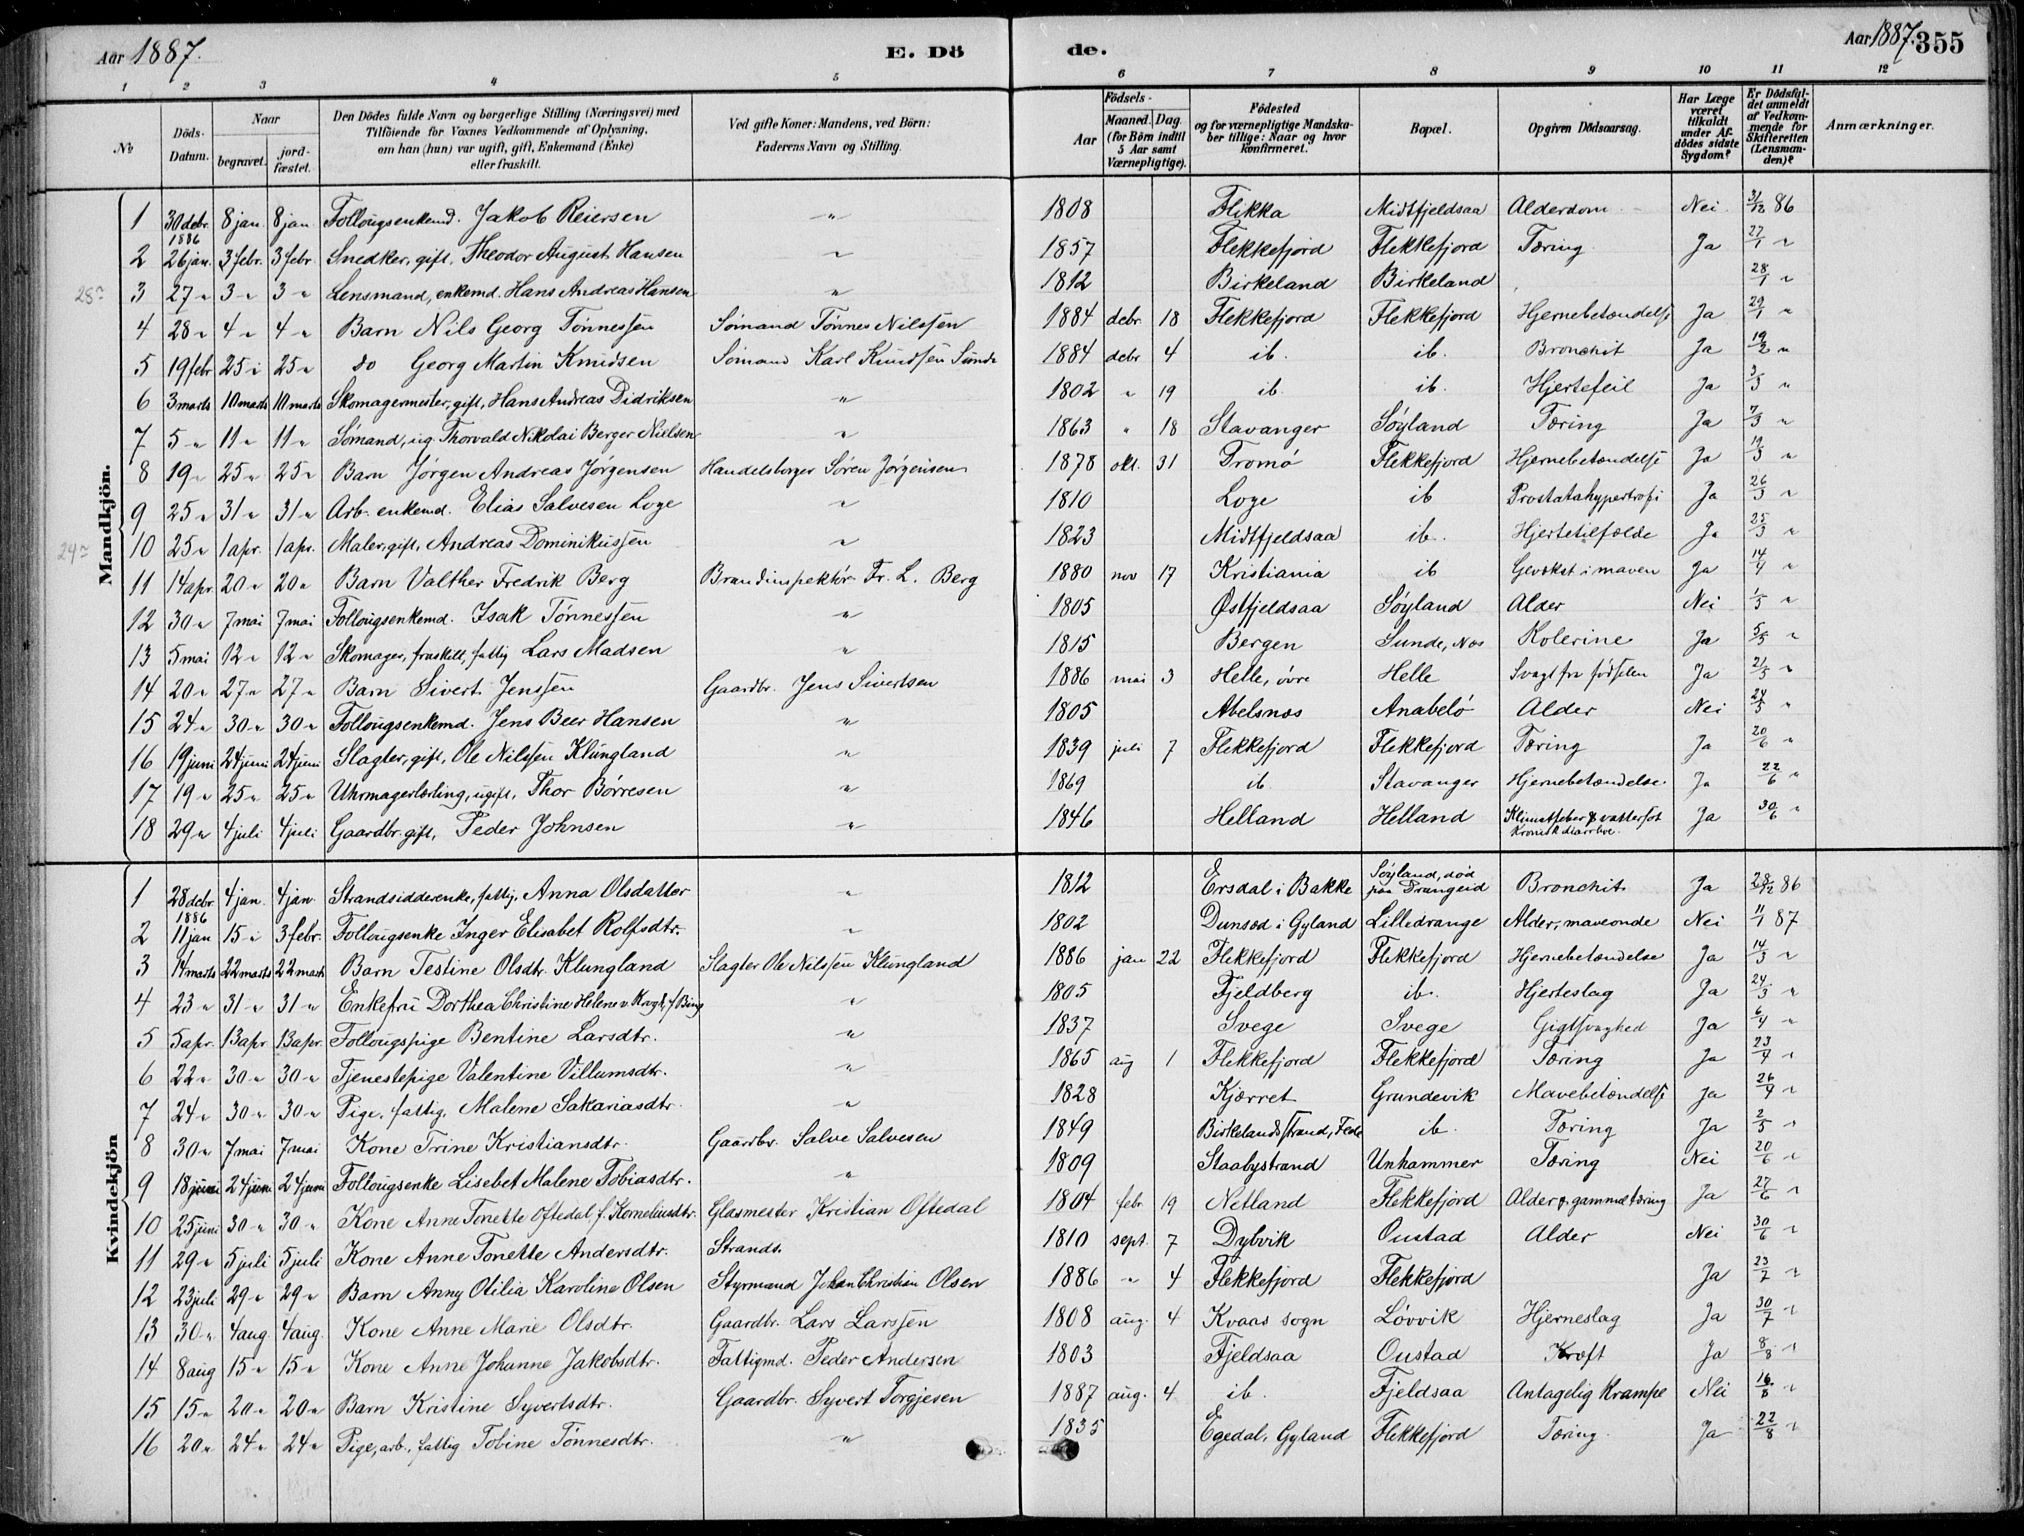 Aar 1887. E. Döde. Aar 1887. 355
1 2 3 4 5 6 7 8 9 10 11 12
№ Döds-Datum. Naar begravet. jordfæstet. Den Dödes fulde Navn og borgerlige Stilling (Næringsvei) med Tilföiende for Voxnes Vedkommende af Oplysning, om han (hun) var ugift, gift, Enkemand (Enke) eller fraskilt. Ved gifte Koner: Mandens, ved Börn: Faderens Navn og Stilling. Födsels- Aar Maaned. Dag. (for Börn indtil 5 Aar samt Værnepligtige). Födested og for værnepligtige Mandskaber tillige: Naar og hvor konfirmeret. Bopæl. Opgiven Dödsaarsag. Har Læge været tilkaldt under Afdödes sidste Sygdom? Er Dödsfaldet anmeldt af Vedkommende for Skifteretten (Lensmanden)? Anmærkninger.
Mandkjön.
1 30 debr. 1886 8 jan. 8 jan. Follougsenkemd. Jakob Reiersen " 1808 Flikka Midtfjeldsaa Alderdom Nei 31/12 86
2 26 jan. 3 febr. 3 febr. Snedker, gift, Theodor August Hansen " 1857 Flekkefjord Flekkefjord Tæring Ja 27/1 "
3 27 " 3 " 3 " Lensmand, enkemd. Hans Andreas Hansen " 1812 Birkeland Birkeland 28/1 "
4 28 " 4 " 4 " Barn Nils Georg Tønnessen Sømand Tønnes Nilssen 1884 debr. 18 Flekkefjord Flekkefjord Hjernebetændelse Ja 29/1 "
5 19 febr 25 " 25 " do Georg Martin Knudsen Sømand Karl Knudsen Sunde 1884 debr 4 ib. ib. Bronchit Ja 19/2 "
6 3 marts 10 marts 10 marts Skomagermester, gift, Hans Andreas Didriksen " 1802 " 19 ib. ib. Hjertefeil Ja 3/3 "
7 5 " 11 " 11 " Sømand, ug. Thorvald Nikolai Berger Nielsen " 1863 " 18 Stavanger Søyland Tæring Ja 7/3 "
8 19 " 25 " 25 " Barn Jørgen Andreas Jørgensen Handelsborger Søren Jørgensen 1878 okt. 31 Tromø Flekkefjord Hjernebetændelse Ja 19/3 "
9 25 " 31 " 31 " Arb. enkemd. Elias Salvesen Loge " 1810 Loge ib Prostatahypertrofi Ja 26/3 "
10 25 " 1 apr. 1 apr. Maler, gift, Andreas Dominikussen " 1823 Midtfjeldsaa ib. Hjertetilfælde Ja 25/3 "
11 14 apr 20 " 20 " Barn Valther Fredrik Berg Brandinspektør Fr. L. Berg 1880 nov 17 Kristiania ib Gevækst i maven Ja 14/4 "
12 30 " 7 mai 7 mai Follougsenkemd. Isak Tønnessen " 1805 Østfjeldsaa Søyland Alder Nei 1/5 "
13 5 mai 12 " 12 " Skomager, fraskilt, fattig Lars Madsen " 1815 Bergen Sunde, Næs Kolerine Ja 5/5 "
14 20 " 27 " 27 " Barn Sivert Jenssen Gaardbr. Jens Sivertsen 1886 mai 3 Helle, øvre Helle Svagt fra fødselen Ja 21/5 "
15 24 " 30 " 30 " Follougsenkemd. Jens Beer Hansen " 1805 Abelsnæs Anabelø Alder Nei 24/5 "
16 19 juni 24 juni 24 juni Slagter, gift, Ole Nilssen Klungland " 1839 juli 7 Flekkefjord Flekkefjord Tæring Ja 20/6 "
17 19 " 25 " 25 " Uhrmagerlærling, ugift, Thor Børresen " 1869 ib Stavanger Hjernebetændelse Ja 22/6 "
18 29 " 4 juli 4 juli Gaardbr. gift, Peder Johnsen " 1846 Helland Helland Klimatfeber & vattersot Kronisk diarrhoe Ja 30/6 "
Kvindekjön
1 28 debr. 1886 4 jan. 4 jan. Strandsidderenke, fattig, Anna Olsdatter " 1812 Ersdal i Bakke Søyland, død paa Drangeid Bronchit Ja 28/12 86
2 11 jan 15 " 3 febr. Follougsenke Inger Elisabet Rolfsdtr. " 1802 Dunsæd i Gyland Lilledrange Alder, maveonde Nei 11/1 87
3 14 marts 22 marts 22 marts Barn Testine Olsdtr. Klungland Slagter Ole Nilssen Klungland 1886 jan 22 Flekkefjord Flekkefjord Hjernebetændelse Ja 14/3 "
4 23 " 31 " 31 " Enkefru Dorthea Christine Helene v. Krogh, f. Bing " 1805 Fjeldberg ib. Hjerteslag Ja 24/3 "
5 5 apr. 13 apr 13 apr. Follougspige Bentine Larsdtr. " 1837 Svege Svege Gigtsvaghed Ja 6/4 "
6 22 " 30 " 30 " Tjenestepige Valentine Villumsdtr. " 1865 aug 1 Flekkefjord Flekkefjord Tæring Ja 23/4 "
7 24 " 30 " 30 " Pige, fattig, Malene Sakariasdtr. " 1828 Kjærret Grundevik Mavebetændelse Ja 26/4 "
8 30 " 7 mai 7 mai Kone Trine Kristiansdtr. Gaardbr. Salve Salvesen 1849 Birkelandsstrand, Fede ib. Tæring Ja 2/5 "
9 18 juni 24 juni 24 juni Follougsenke Lisebet Malene Tobiasdtr. " 1809 Staabystrand Unhammer Tæring Nei 20/6 "
10 25 juni 30 " 30 " Kone Anne Tonette Oftedal, f. Korneliusdtr. Glasmester Kristian Oftedal 1804 febr 19 Netland Flekkefjord Alder & gammel tæring Ja 27/6 "
11 29 " 5 juli 5 juli Kone Anne Tonette Andersdtr. Strands. 1810 sept. 7 Dybvik Oustad Alder Nei 30/6 "
12 23 juli 29 " 29 " Barn Anny Otilia Karoline Olsen Styrmand Johan Christian Olsen 1886 " 4 Flekkefjord Flekkefjord Ja 23/7 "
13 30 " 4 aug. 4 aug. Kone Anne Marie Olsdtr. Gaardbr. Lars Larssen 1808 aug. 4 Kvaas sogn Løvvik Hjerneslag Ja 30/7 "
14 8 aug 15 " 15 " Kone Anne Johanne Jakobsdtr. Fattigmd. Peder Andersen 1803 Fjeldsaa Oustad Kræft Ja 8/8 "
15 15 " 20 " 20 " Barn Kristine Syvertsdtr. Gaardbr. Syvert Torgjesen 1887 aug. 4 ib. Fjeldsaa Antagelig Krampe Nei 16/8 "
16 20 " 24 " 24 " Pige, arb., fattig Tobine Tønnesdtr. " 1835 Egedal, Gyland Flekkefjord Tæring Ja 22/8 "